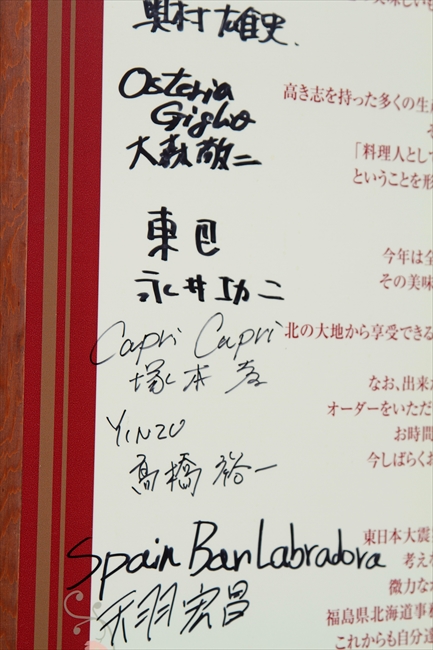 奥村雄史
Osteria
Giglio
大森敬二
東巴
永井功二
Capri Capri
塚本孝
YINZU
髙橋裕一
Spain Bar Labradora
天羽宏昌
高き志を持った多くの生産
「料理人として
ということを形
今年は全
その美味
北の大地から享受できる
なお、出来
オーダーをいただい
お時間
今しばらくお
東日本大震
考えな
微力なが
福島県北海道事務
これからも自分達